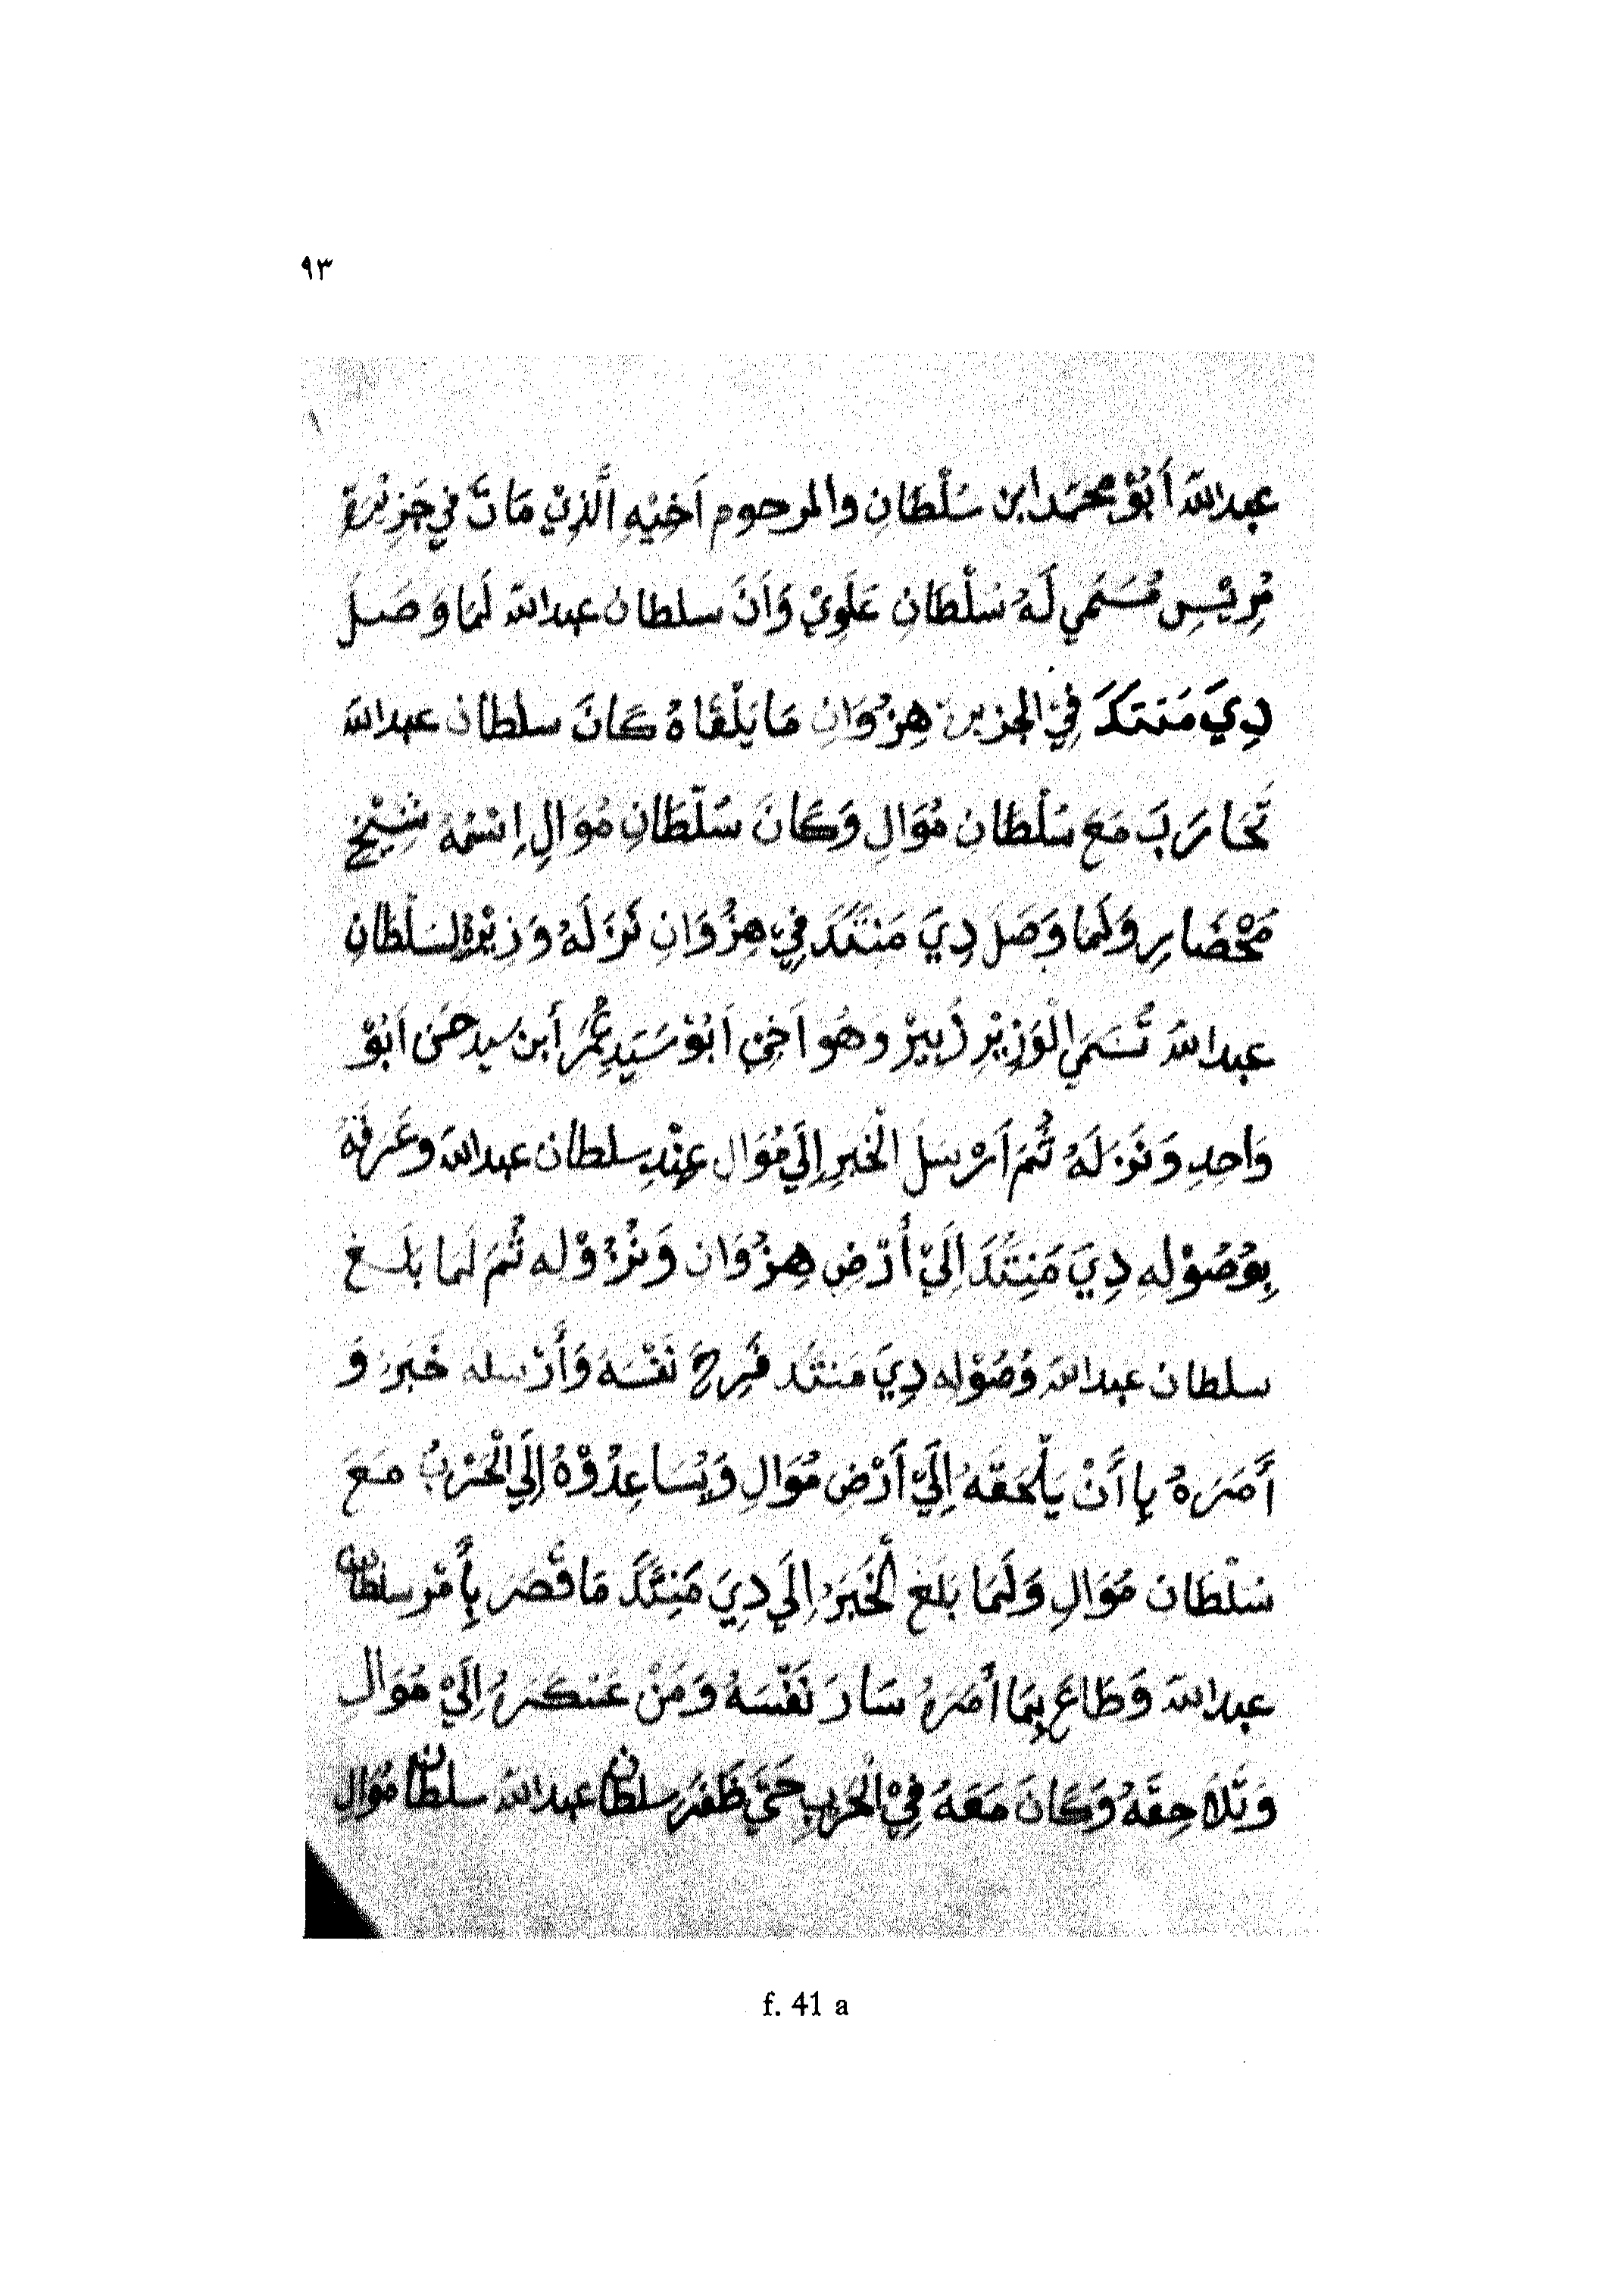 ٩٣
عبدالله أَبُوْ محمَد ابن سُلْطَانِ والمرحوم اَخِيْهِ الَّذِيْ مَاتَ فِي جَزِيْرَة
مُرِيْسِ مُسَمَي لَهُ سُلْطَانِ عَلَوِيْ وَاَنَ سلطان عبدالله لَمَا وَصَلَ
دِيَ مَنتَكَدَ فِيْ الجزيرة هِنْزُوَانِ مَا يَلْقَاهُ كَانَ سلطان عبدالله
تَحَارَبَ مَعَ سُلْطَانِ مُوَالِ وَكَانَ سُلْطَانِ مُوَالِ اِسْمُهُ شَيْخ
مُحْضَارِ وَلَمَا وَصَلَ دِيَ مَنتَكَدَ فِيْ هِنْزُوَانِ نَزَلَهُ وَزِيْرُهُ لِسُلْطَانِ
عبدالله تُسَمَي الْوَزِيْرِ زُبِيرْ وَهُو اَخِيْ اَبُوْ سَيَدِ عُمَرْ أبن سيد حسَن اَبُوْ
وَاحِدِ وَنَزَلَهُ ثُمَ اَرْسَلَ الْخَبَرِ إِلَي مُوَال عِنْدِ سلطان عبدالله وعَرفَهُ
بِوُصُوْلِهِ دِيَ مَنتَكَدَ اِلَيْ أَرْضِ هِنْزُوَان وَنُزُوْله ثُمَ لَما بَلَغ
سلطان عبدالله وُصُوْله دِيَ مَنتَكَد فَرِحَ نَفْسَهُ وَأَرْسله خَبَرَ وَ
أَمَرَهُ بِاأَنْ يَلْحَقَهُ اِلَيْ أَرْضِ مُوَالِ وَيُسَاعِدُوْهُ اِلَي الْحَرْبُ مَعَ
سُلْطَان مُوَالِ وَلَمَا بَلَغَ الْخَبَرَ اِلَي دِيَ مَنتَكَدَ مَا قَصَرَ بِأَمْرِ سلطان
عبدالله وَطَاعَ بِمَا أَمَرَهُ سَارَ نَفْسَهُ وَمَنْ عَسْكَرَهُ اِلَيْ مُوَالِ
وَتَلَاحِقَهُ وَكَانَ مَعَهُ فِيْ الْحَرْبِ حَتَيَ ظَفَرَ سلطان عبدالله سلطان مُوَال
f. 41 a